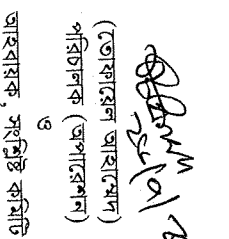 (তোফায়েল আহমেদ)
পরিচালক (অপারেশন)
ও
আহবায়ক, সংশ্লিষ্ট কমিটি